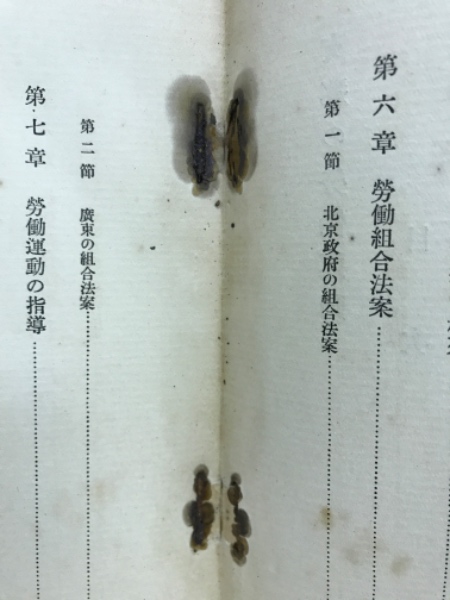 第六章 勞働組合法案……………………
第一節 北京政府の組合法案……………………
第二節 廣東の組合法案……………………
第七章 勞働運動の指導……………………